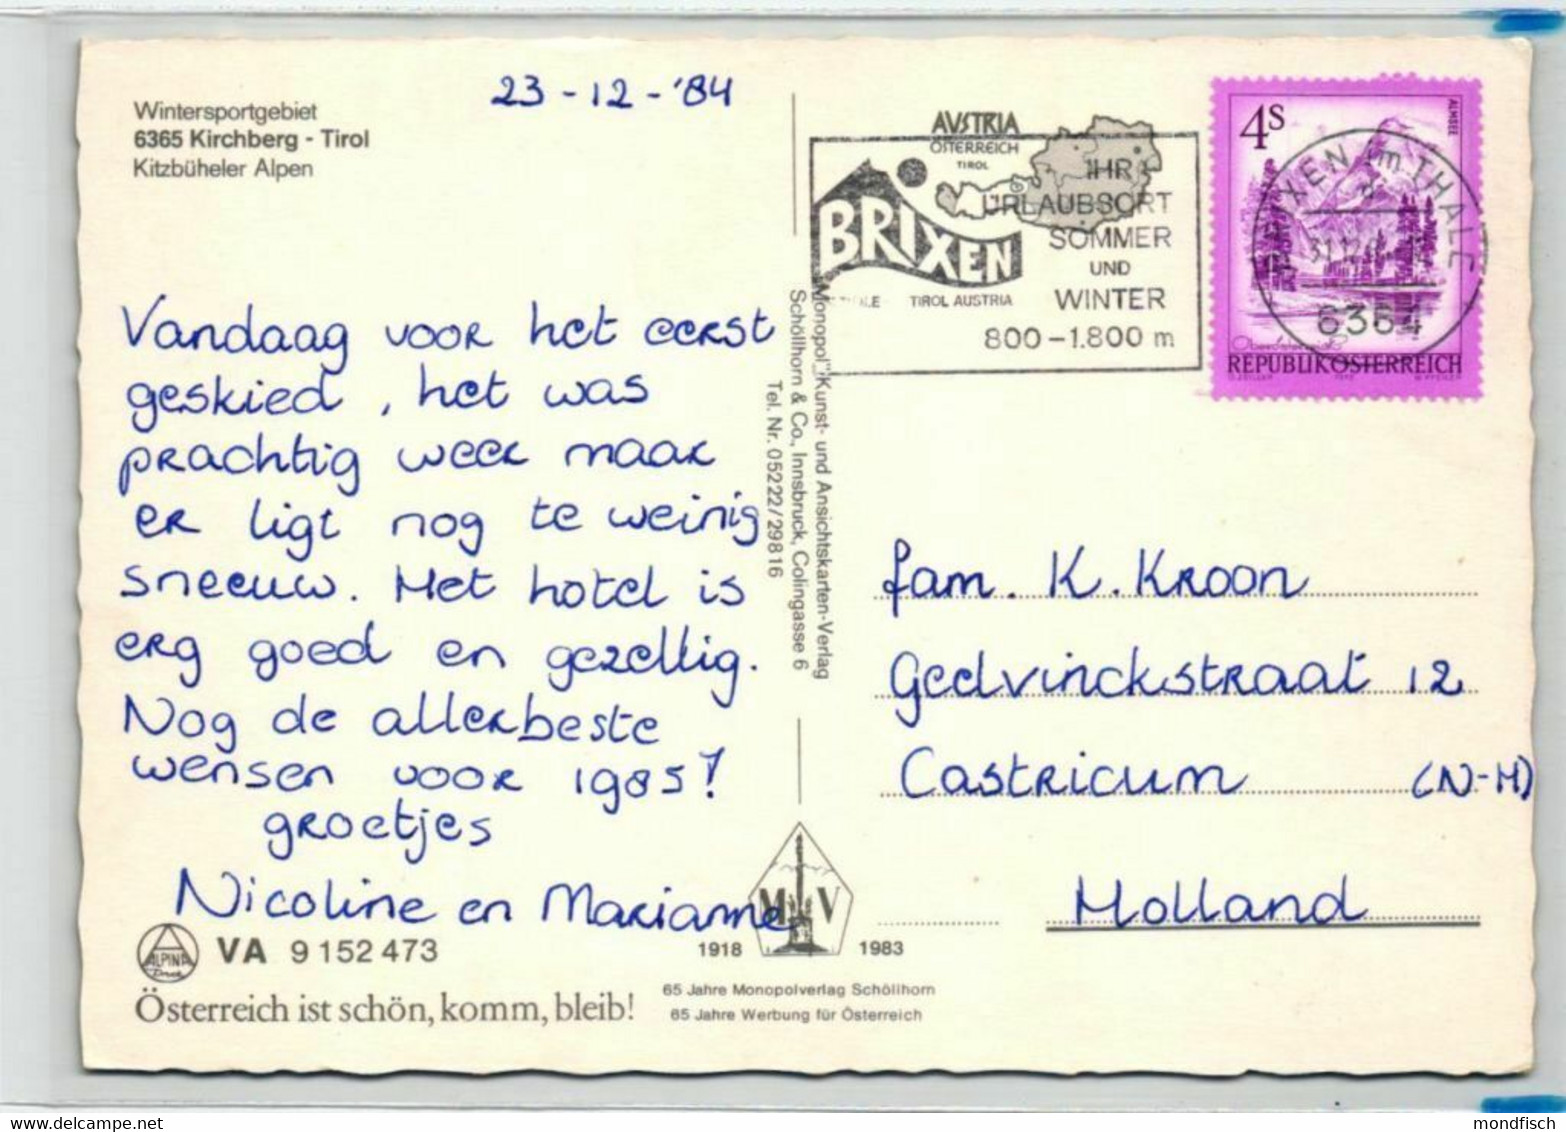 23-12-'84
Wintersportgebiet
6365 Kirchberg - Tirol
Kitzbüheler Alpen
Vandaag voor het eerst
geskied, het was
prachtig weer maar
er ligt nog te weinig
sneeuw. Het hotel is
erg goed en gezellig.
Nog de allerbeste
wensen voor 1985!
groetjes
Nicoline en Marianne
ALPINA
VA 9 152 473
Österreich ist schön, komm, bleib!
„Monopol" Kunst- und Ansichtskarten-Verlag
Schöllhorn & Co., Innsbruck, Colingasse 6
Tel. Nr. 05222/29816
M V
1918 1983
65 Jahre Monopolverlag Schöllhorn
65 Jahre Werbung für Österreich
AUSTRIA
ÖSTERREICH
TIROL
BRIXEN
TIROL AUSTRIA
IHR
URLAUBSORT
SOMMER
UND
WINTER
800-1.800 m
4S
ALMSEE
BRIXEN im THALE
6364
REPUBLIK ÖSTERREICH
fam. K. Kroon
Geelvinckstraat 12
Castricum (N-H)
Holland
mondfisch